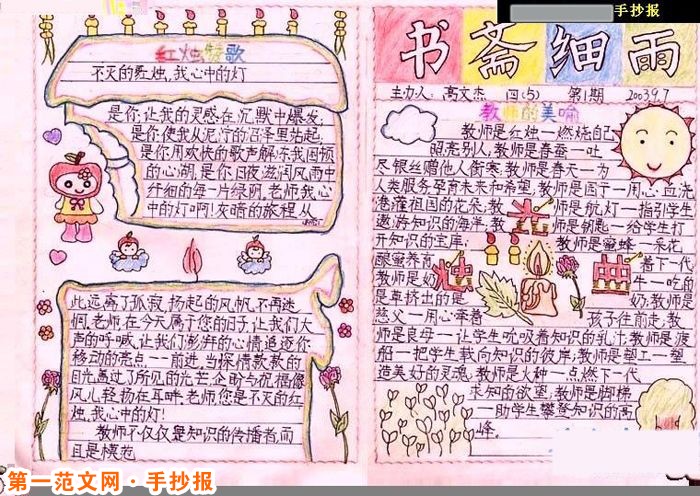 手抄报
红烛赞歌
不灭的红烛,我心中的灯
是你让我的灵感在沉默中爆发;
是你使我从泥泞的沼泽里站起;
是你用欢快的歌声解冻我困顿
的心湖,是你日夜滋润风雨中
纤细的每一片绿阴,老师我心
中的灯啊!灰暗的旅程从
此远离了孤寂,扬起的风帆,不再迷
惘,老师,在今天属于您的日子,让我们大
声的呼喊,让我们澎湃的心情追逐你
移动的亮点——前进,当深情款款的
目光盖过了所见的光芒,企盼与祝福像
风儿轻扬在耳畔,老师您是不灭的红
烛,我心中的灯!
教师不仅仅是知识的传播者,而
且是模范
书斋细雨
主办人:高文杰 四(5) 第1期 2003.9.7
教师的美喻
教师是红烛一燃烧自己
照亮别人;教师是春蚕一吐
尽银丝赠他人御寒;教师是春天一为
人类服务孕育未来和希望;教师是园丁一用心血浇
灌祖国的花朵;教师是航灯一指引学生
遨游知识的海洋;教师是钥匙一给学生打
开知识的宝库;教师是蜜蜂一采花
酿蜜养育着下一代
教师是奶牛一吃的
是草挤出的是奶,教师是
慈父一用心牵着孩子往前走,教
师是良母一让学生吮吸着知识的乳汁,教师是渡
船一把学生载向知识的彼岸;教师是塑工一塑
造美好的灵魂;教师是火种一点燃下一代
求知的欲望;教师是脚梯
一助学生攀登知识的高
峰。
烛
典
第一范文网·手抄报